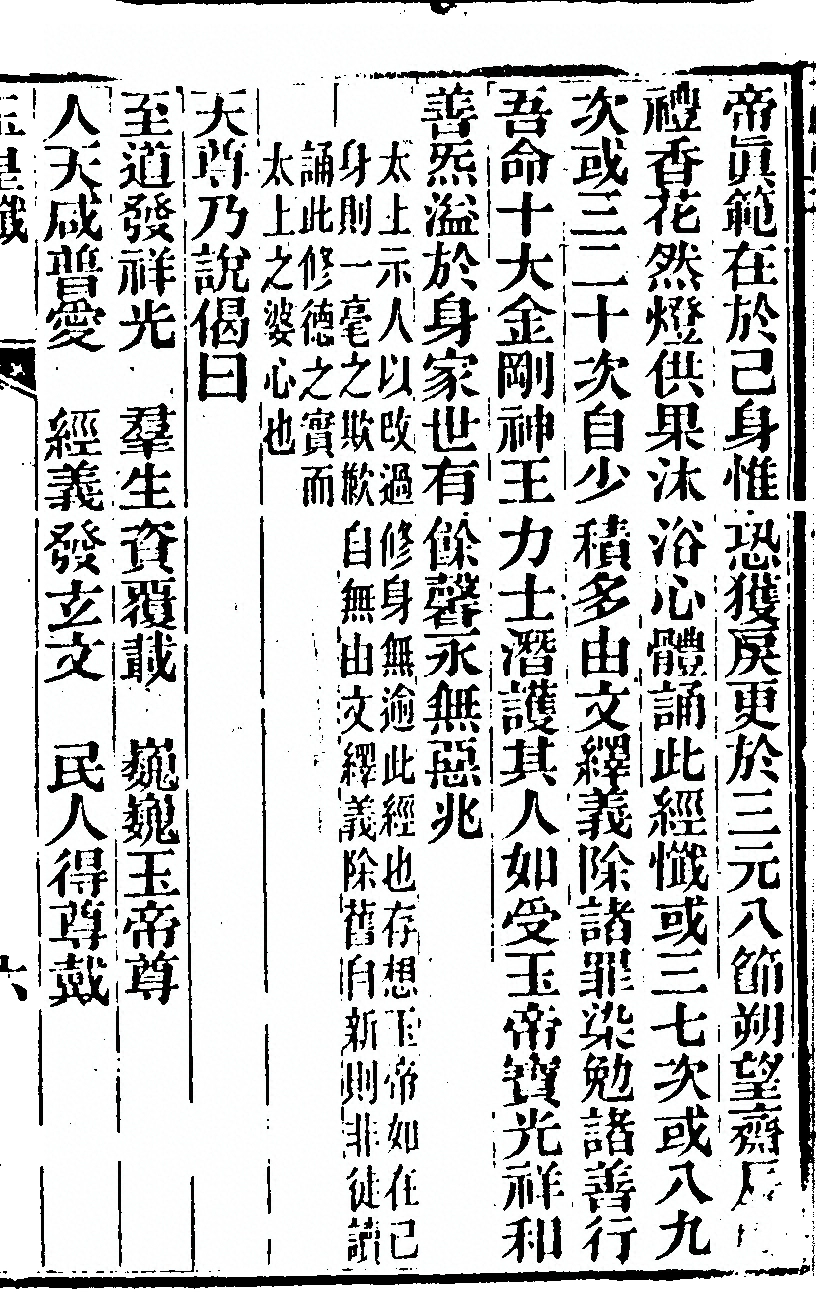 帝眞範在於己身惟恐獲戾更於三元八節朔望齋辰
禮香花然燈供果沐浴心體誦此經懺或三七次或八九
次或三二十次自少積多由文繹義除諸罪染勉諸善行
吾命十大金剛神王力士潛護其人如受玉帝寶光祥和
善炁溢於身家世有餘馨永無惡兆
太上示人以改過修身無逾此經也存想玉帝如在己
身則一毫之欺歉自無由文繹義除舊自新則非徒讀
誦此修德之實而
太上之婆心也
天尊乃說偈曰
至道發祥光 羣生資覆載 巍巍玉帝尊
人天咸普愛 經義發玄文 民人得尊戴
玉皇懺 六